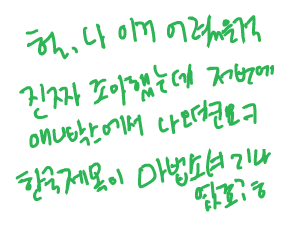 헐, 나 이거 어렸을적
진짜 조아했는데 저번에
애니박스에서 나오더군요ㅋ
한국제목이 마법소녀 리나
였죠?ㅎ